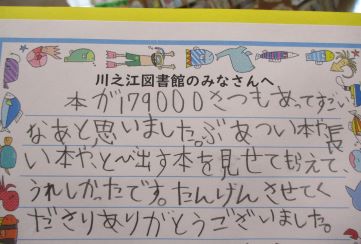 川之江図書館のみなさんへ
本が179000さつもあってすごい
なあと思いました。ぶあつい本や長
い本や、とび出す本を見せてもらえて、
うれしかったです。たんけんさせてく
ださりありがとうございました。